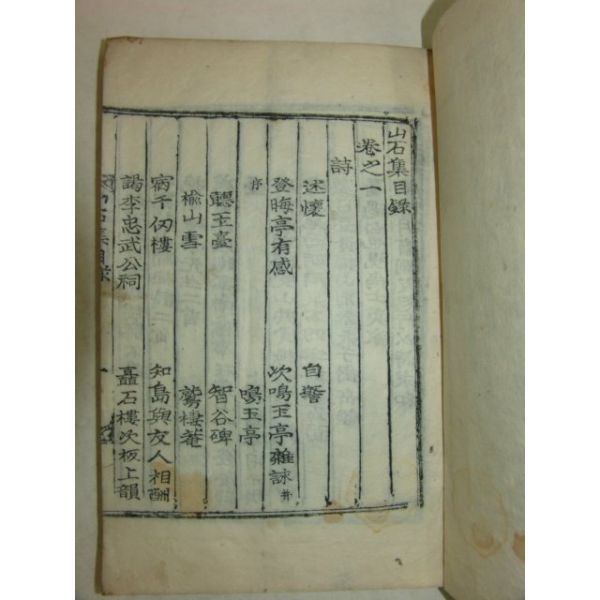 山石集目錄
卷之一
詩
述懷 自警
登晦亭有感 次鳴玉亭雜詠并
序 鳴玉亭
聽玉臺 智谷碑
楡山雪 鷲棲菴
宿千仞樓 知島與友人相酬
謁李忠武公祠 矗石樓次板上韻
山石集目錄 一